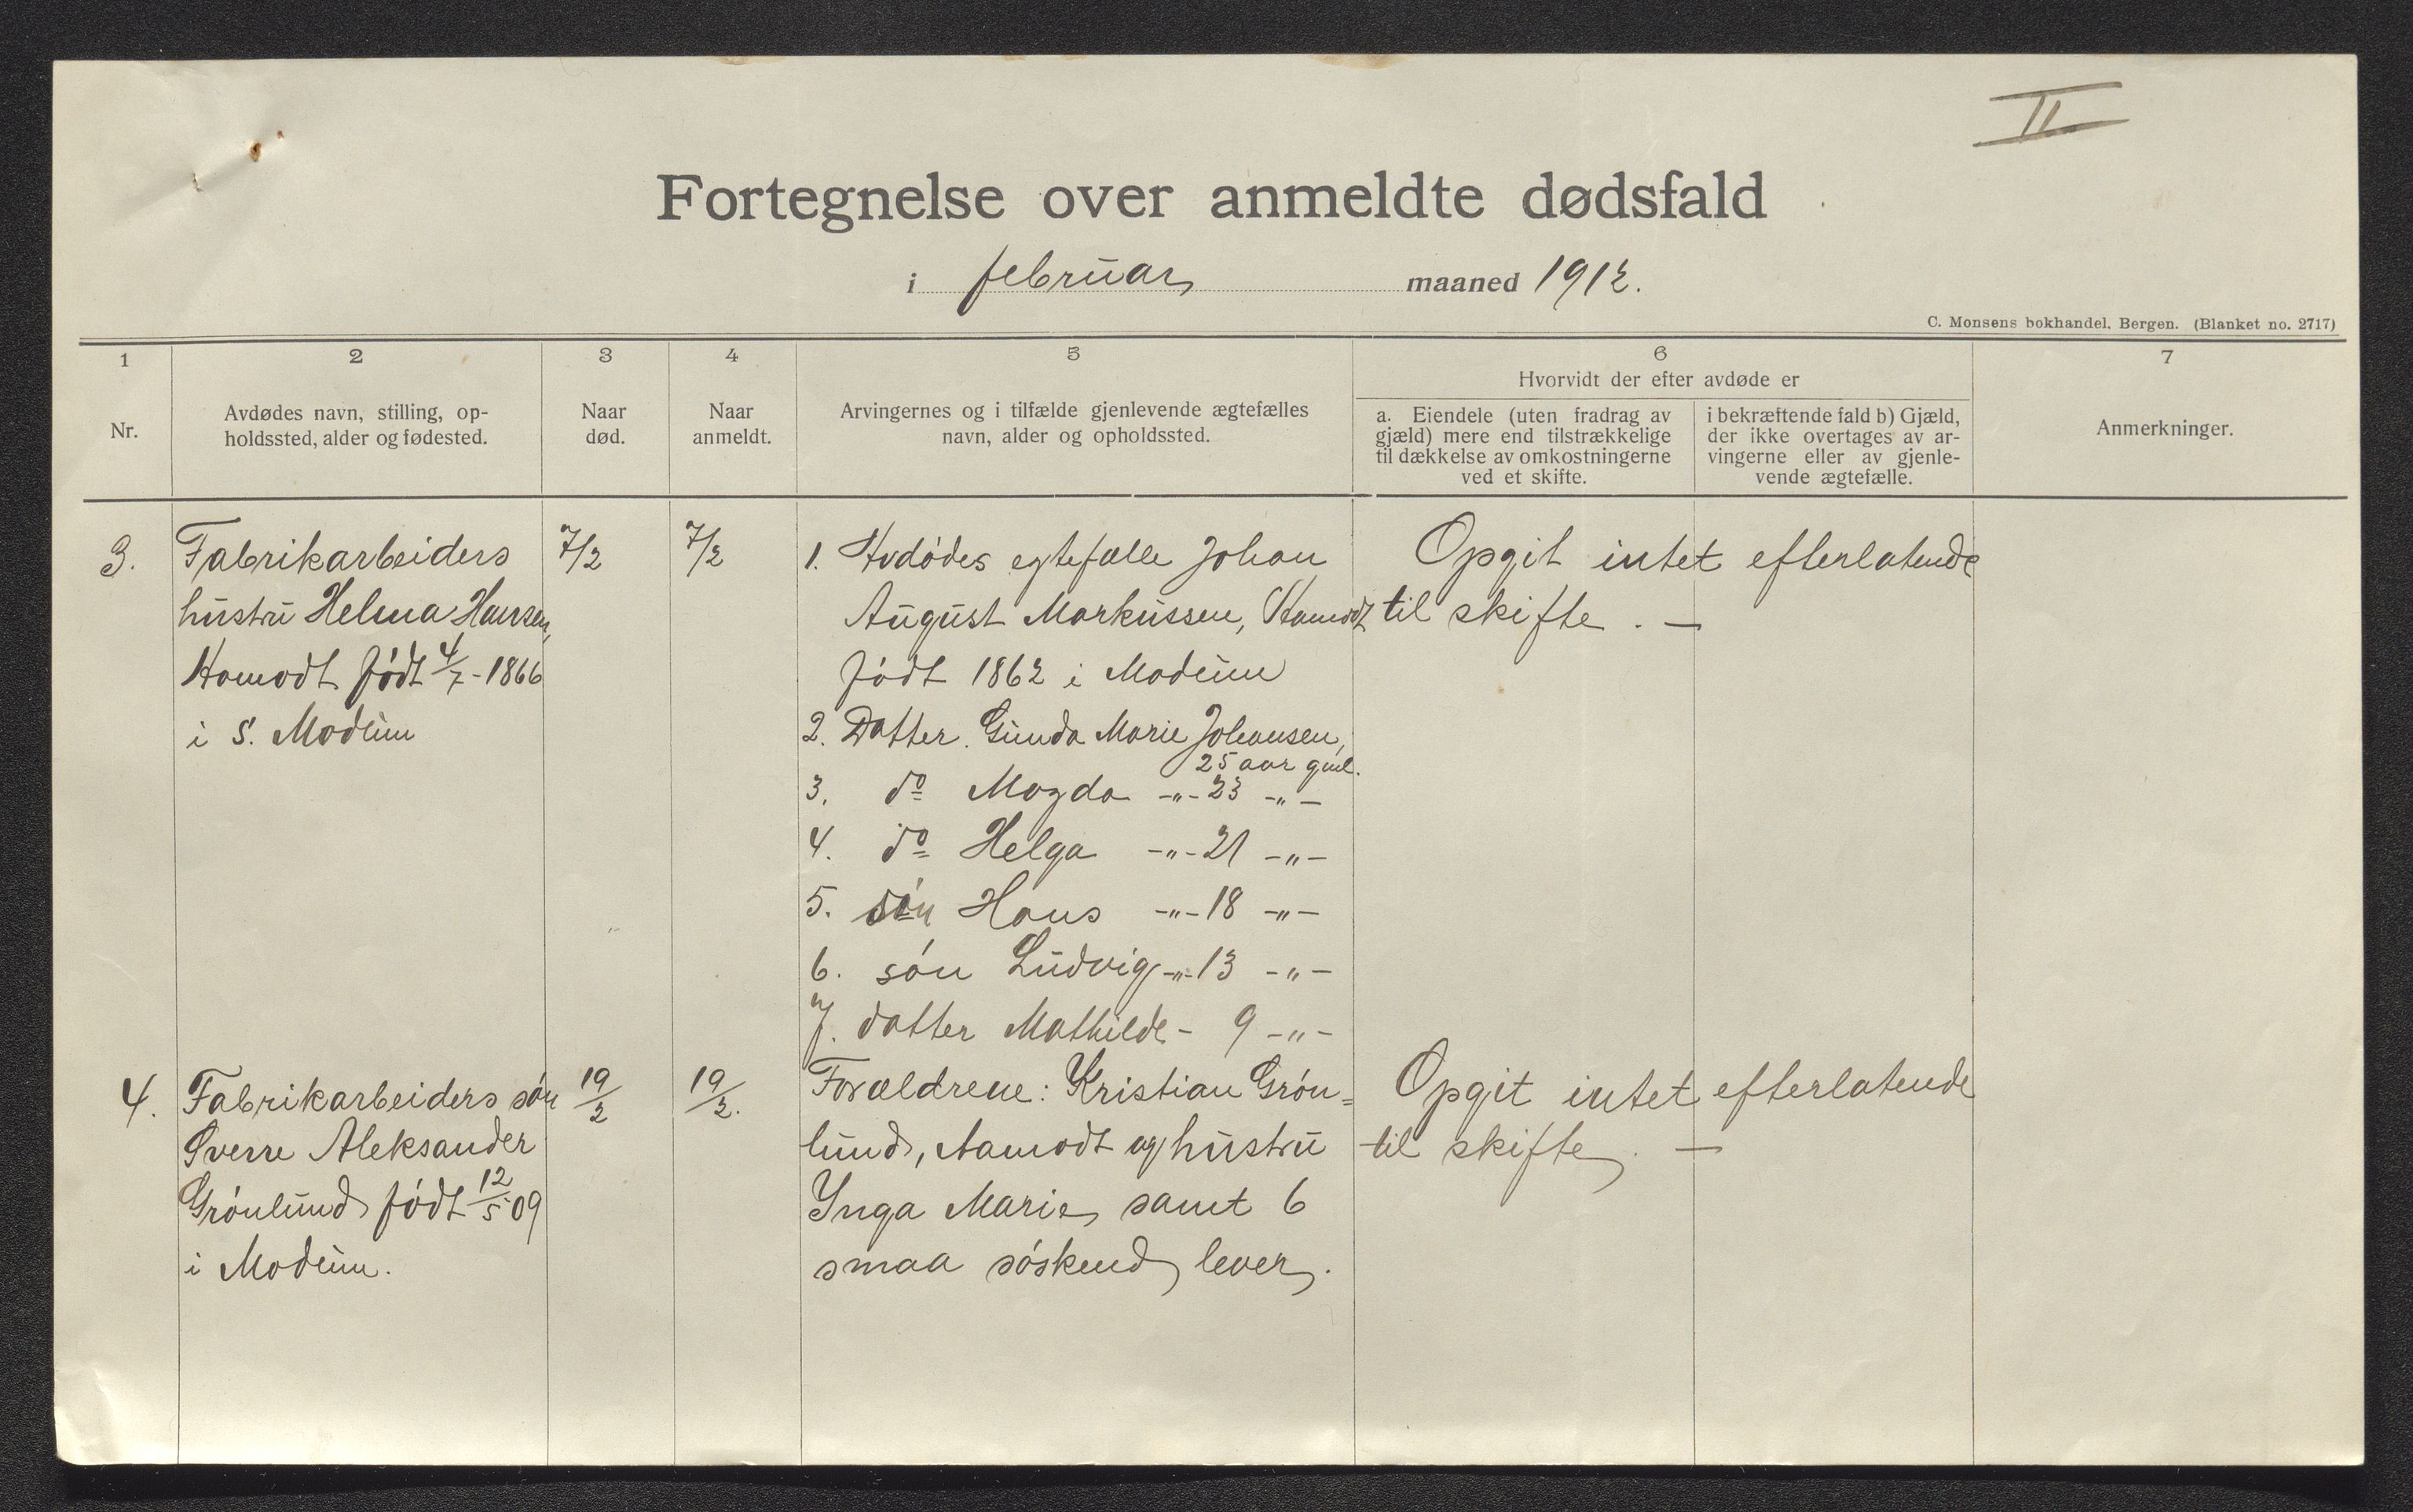 II
Fortegnelse over anmeldte dødsfald
i februar maaned 1912.
C. Monsens bokhandel, Bergen. (Blanket no. 2717)
1
Nr.
2
Avdødes navn, stilling, op-
holdssted, alder og fødested.
3
Naar
død.
4
Naar
anmeldt.
5
Arvingernes og i tilfælde gjenlevende ægtefælles
navn, alder og opholdssted.
6
Hvorvidt der efter avdøde er
a. Eiendele (uten fradrag av
gjæld) mere end tilstrækkelige
til dækkelse av omkostningerne
ved et skifte.
i bekræftende fald b) Gjæld,
der ikke overtages av ar-
vingerne eller av gjenle-
vende ægtefælle.
7
Anmerkninger.
3.
Fabrikarbeiders
hustru Helma Hansen,
Aamodt født 4/7-1866
i S. Modum
7/2
7/2
1. Avdødes egtefælle Johan
August Markussen, Aamodt
født 1862 i Modum
2. Datter. Gunda Marie Johansen,
25 aar gml.
3. do Magda -"- 23 -"-
4. do Helga -"- 21 -"-
5. søn Hans -"- 18 -"-
6. søn Ludvig -"- 13 -"-
7. datter Mathilde - 9 -"-
Opgit intet efterlatende
til skifte. —
4.
Fabrikarbeiders søn
Sverre Aleksander
Grønlund født 12/5 09
i Modum.
19/2
19/2.
Forældrene: Kristian Grøn=
lund, Aamodt og hustru
Inga Marie samt 6
smaa søskend lever.
Opgit intet efterlatende
til skifte. —